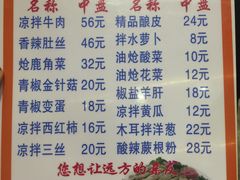 名称 中盘 名称 中盘
凉拌牛肉 56元 精品酿皮 24元
香辣肚丝 46元 拌水萝卜 8元
炝鹿角菜 32元 油炝酸菜 10元
青椒金针菇 20元 油炝花菜 12元
青椒变蛋 18元 椒盐羊肝 18元
凉拌西红柿 16元 凉拌黄瓜 12元
凉拌三丝 20元 木耳拌洋葱 22元
酸辣蕨根粉 28元
您想让远方的亲友